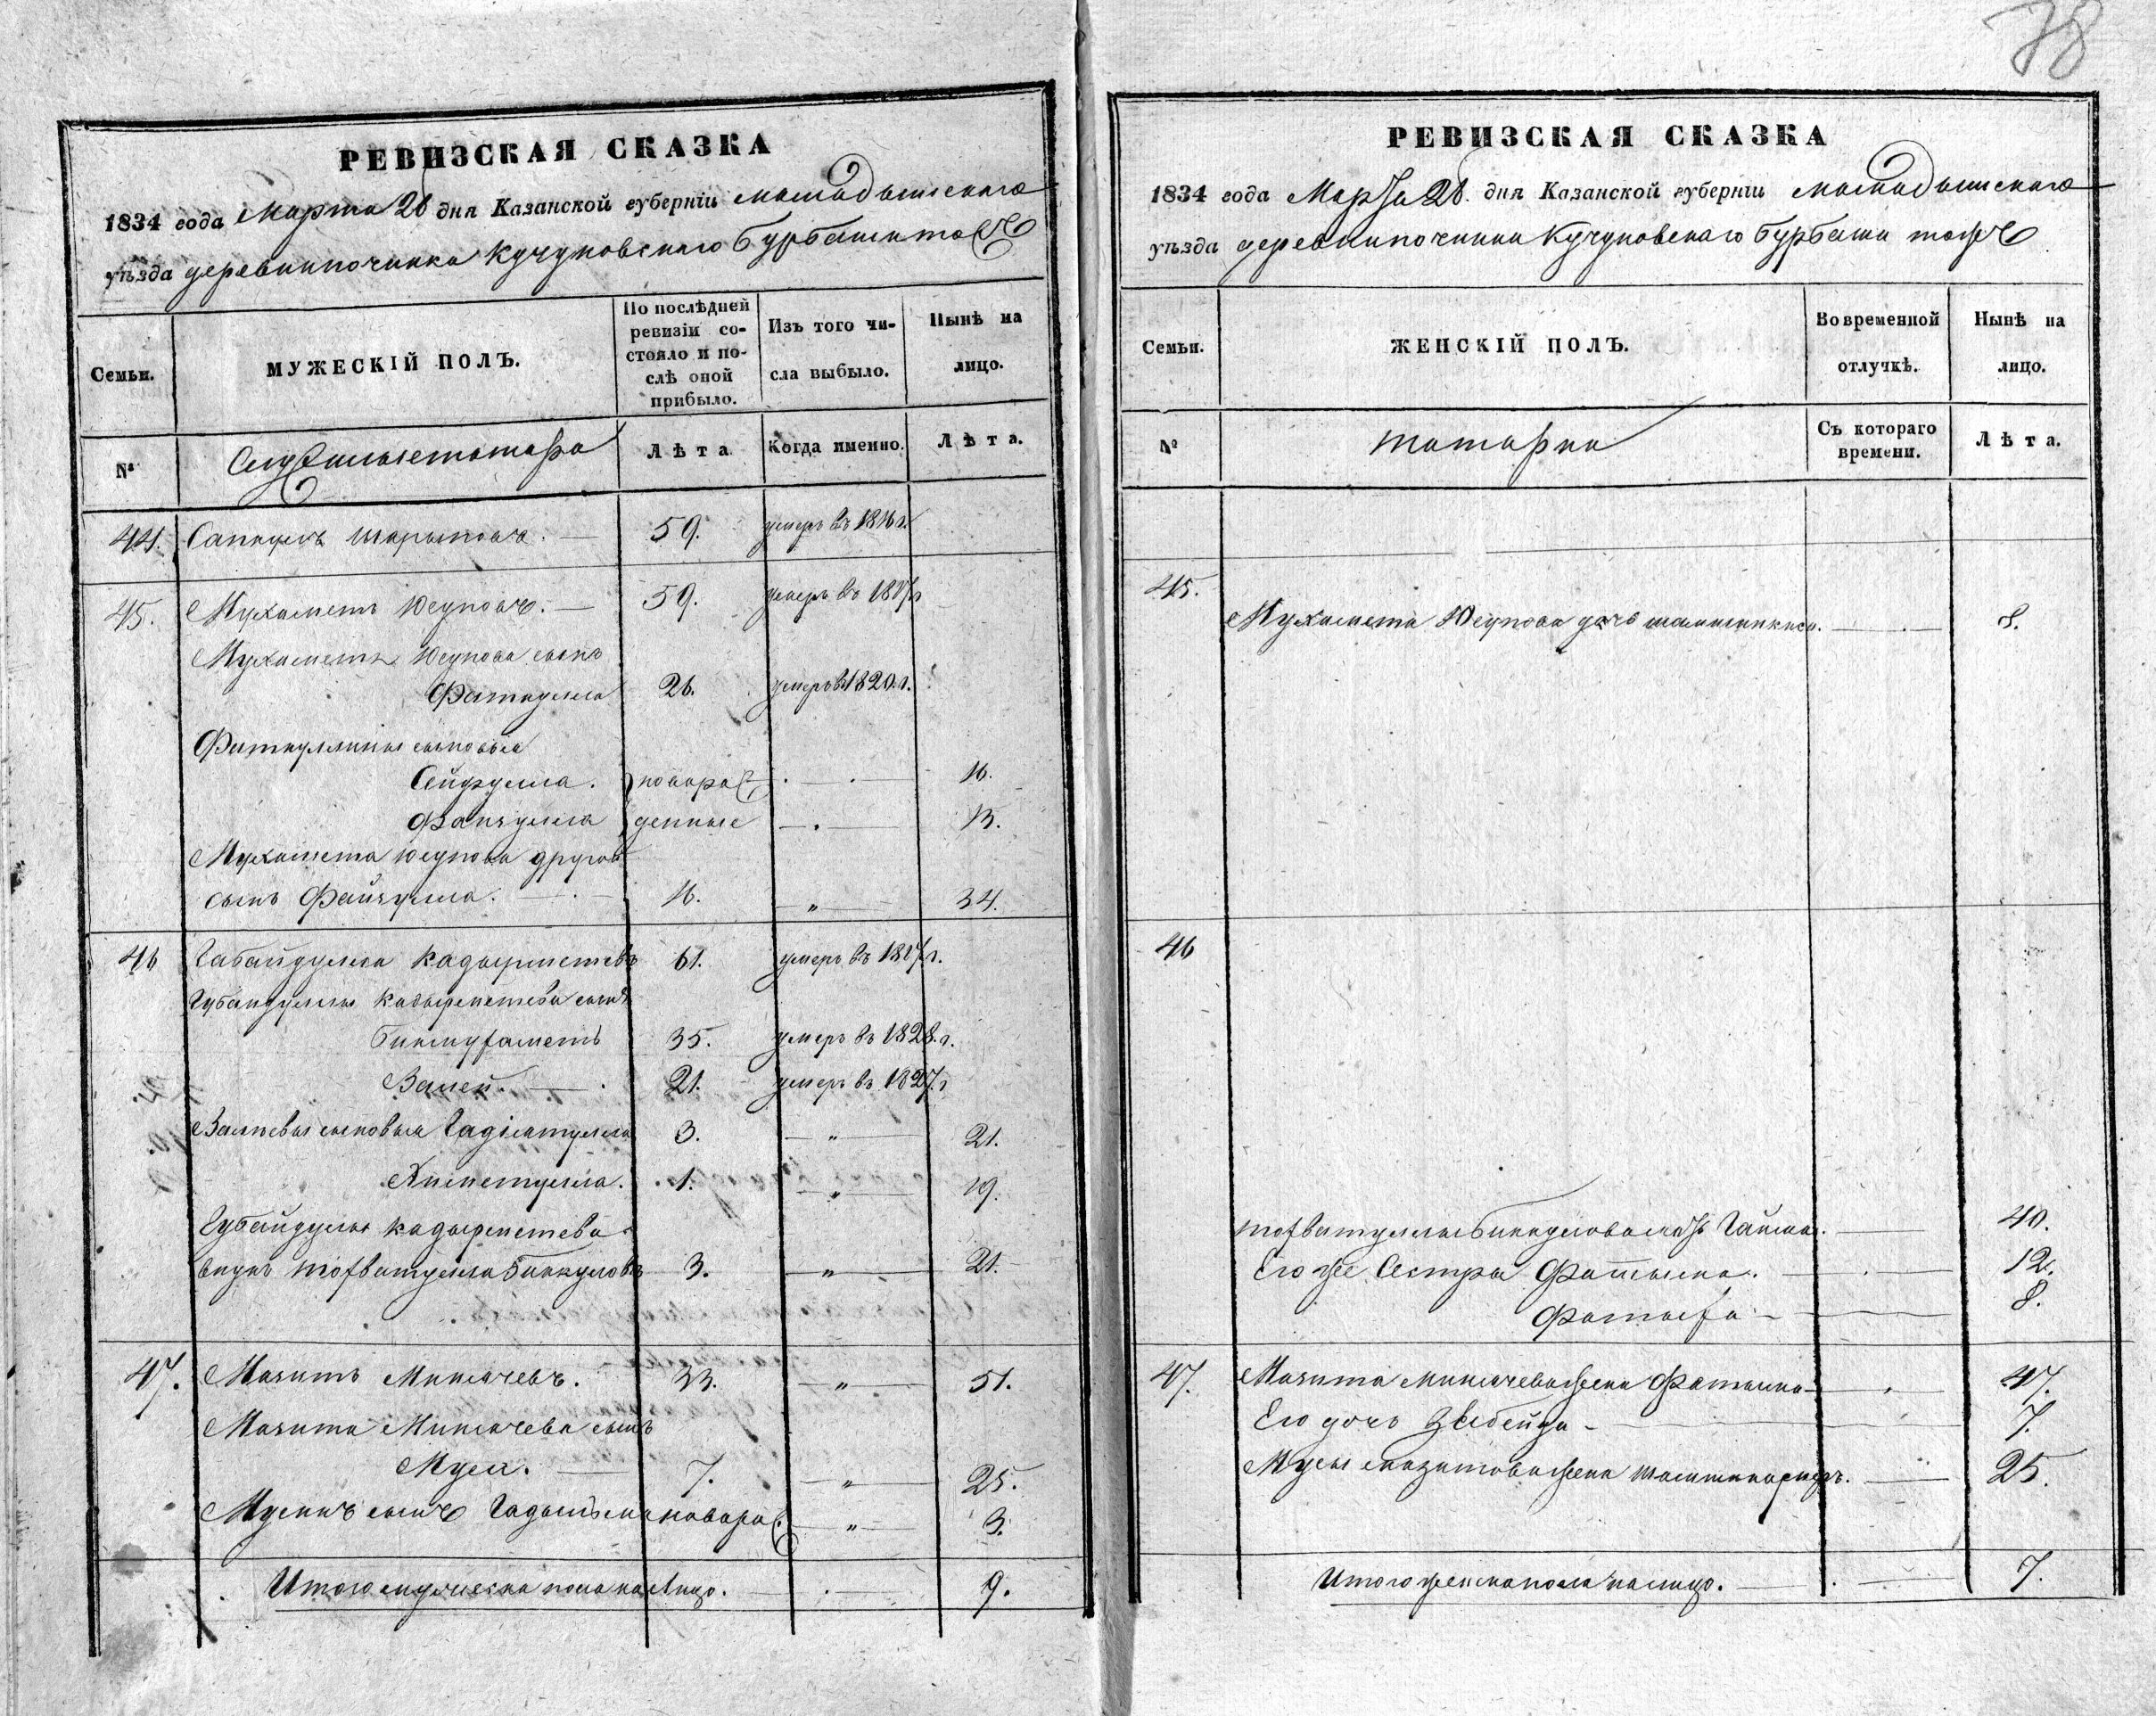 78
РЕВИЗСКАЯ СКАЗКА
1834 года Марта 26 дня Казанской губерніи мамадышскаго
уѣзда деревни починка Кучуковскаго Бурбаши тож
Семьи. МУЖЕСКІЙ ПОЛЪ. По послѣдней ревизіи состояло и послѣ оной прибыло. Изъ того числа выбыло. Нынѣ на лицо.
№ Служилые татара Лѣта Когда именно. Лѣта.
44. Сапкулъ 59. умеръ въ 1816 г.
45. Мухаметъ Юсуповъ. 59. умеръ въ
Мухаметъ Юсупова сынъ
Фаткулла 26. умеръ в 1820. г.
Фаткуллины сыновья
Сейфулла. новорож 16.
денные 13.
Мухамета Юсупова другой
сынъ Файзулла. 16. „ 34.
46 Габайдулла Кадырметевъ 61. умеръ въ 1817 г.
Губайдуллы Кадырметева сынъ
Бикмухаметъ 35. умеръ въ 1828. г.
Валей. 21. умеръ въ 1827. г
Валеевы сыновья 3. „ 21.
Хисметулла. 1. „ 19.
Губайдуллы Кадырметева
внукъ Биккуловъ 3. „ 21.
47. Мазитъ Миначевъ. 33. „ 51.
Мазита Миначева сынъ
Муса. 7. „ 25.
Мусинъ сынъ новорож. „ 3.
Итого мужеска пола на лицо. 9.
РЕВИЗСКАЯ СКАЗКА
1834 года Марта 26. дня Казанской губерніи мамадышскаго
уѣзда деревни починки Кучуковскаго Бурбаши тож
Семьи. ЖЕНСКІЙ ПОЛЪ. Во временной отлучкѣ. Нынѣ на лицо.
№ татарки Съ котораго времени. Лѣта.
45.
Мухамета Юсупова дочь 8.
46
мать 40.
Его же Сестры Фатыма. 12.
8.
47. Мазита Миначева жена Фатыма 47.
Его дочь Зюбейда 7.
Мусы Мазитова жена 25.
Итого женска пола налицо. 7.